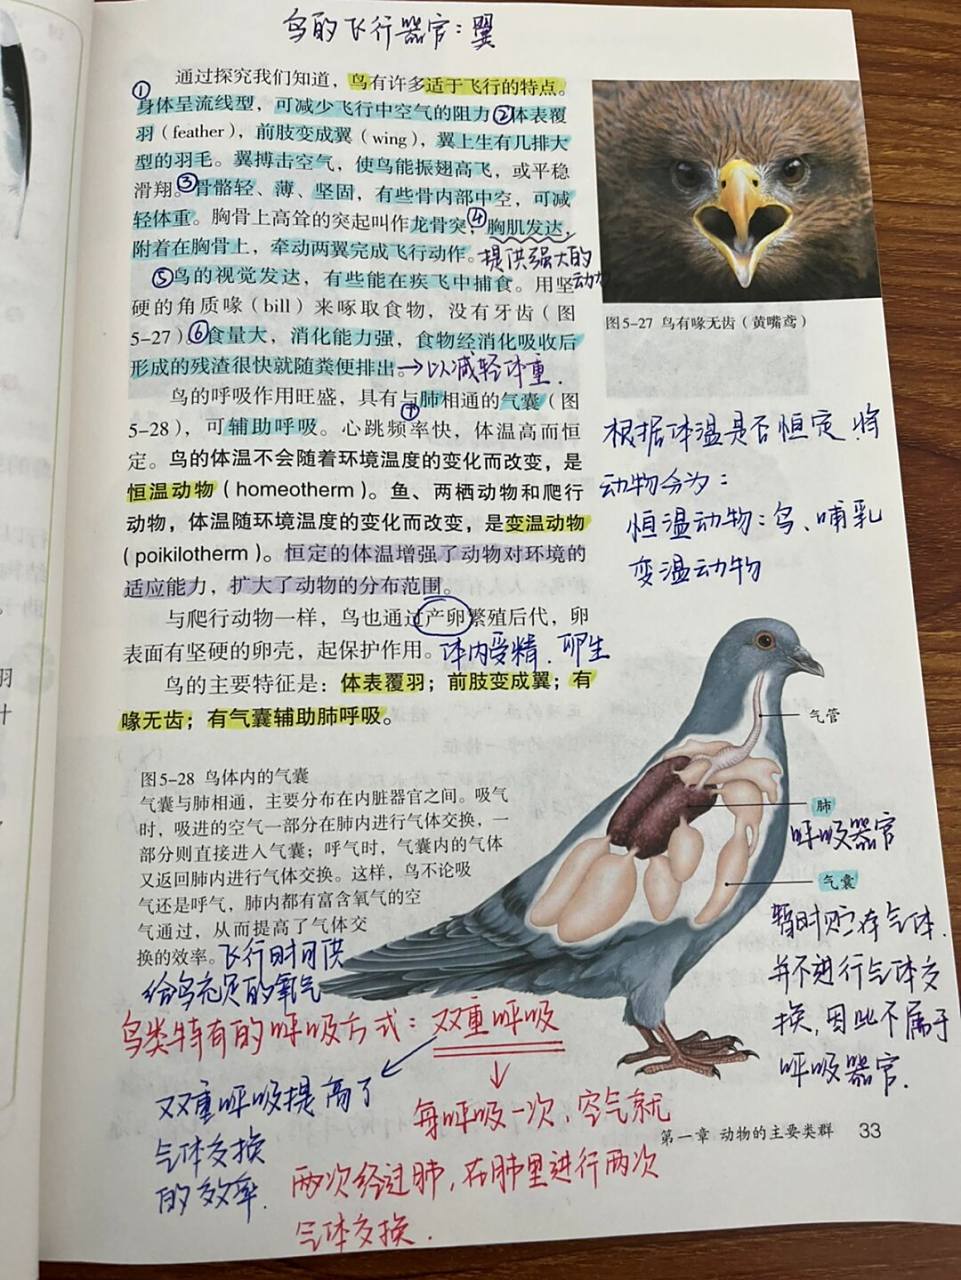 鸟的飞行器官：翼
通过探究我们知道，鸟有许多适于飞行的特点。
①身体呈流线型，可减少飞行中空气的阻力②体表覆
羽（feather），前肢变成翼（wing），翼上生有几排大
型的羽毛。翼搏击空气，使鸟能振翅高飞，或平稳
滑翔。③骨骼轻、薄、坚固，有些骨内部中空，可减
轻体重。胸骨上高耸的突起叫作龙骨突，④胸肌发达，
附着在胸骨上，牵动两翼完成飞行动作。提供强大的
动力
⑤鸟的视觉发达，有些能在疾飞中捕食。用坚
硬的角质喙（bill）来啄取食物，没有牙齿（图
5-27）⑥食量大，消化能力强，食物经消化吸收后
形成的残渣很快就随粪便排出。→以减轻体重．
鸟的呼吸作用旺盛，具有与肺相通的气囊（图
⑦
5-28），可辅助呼吸。心跳频率快，体温高而恒
定。鸟的体温不会随着环境温度的变化而改变，是
恒温动物（homeotherm）。鱼、两栖动物和爬行
动物，体温随环境温度的变化而改变，是变温动物
（poikilotherm）。恒定的体温增强了动物对环境的
适应能力，扩大了动物的分布范围。
与爬行动物一样，鸟也通过产卵繁殖后代，卵
表面有坚硬的卵壳，起保护作用。体内受精．卵生
鸟的主要特征是：体表覆羽；前肢变成翼；有
喙无齿；有气囊辅助肺呼吸。
图5-27 鸟有喙无齿（黄嘴鸢）
根据体温是否恒定，将
动物分为：
恒温动物：鸟、哺乳
变温动物
气管
肺
呼吸器官
气囊
暂时贮存气体．
并不进行气体交
换，因此不属于
呼吸器官．
图5-28 鸟体内的气囊
气囊与肺相通，主要分布在内脏器官之间。吸气
时，吸进的空气一部分在肺内进行气体交换，一
部分则直接进入气囊；呼气时，气囊内的气体
又返回肺内进行气体交换。这样，鸟不论吸
气还是呼气，肺内都有富含氧气的空
气通过，从而提高了气体交
换的效率。飞行时可供
给鸟充足的氧气
鸟类特有的呼吸方式：双重呼吸
双重呼吸提高了
气体交换
的效率．
每呼吸一次，空气就
两次经过肺，在肺里进行两次
气体交换．
第一章 动物的主要类群 33